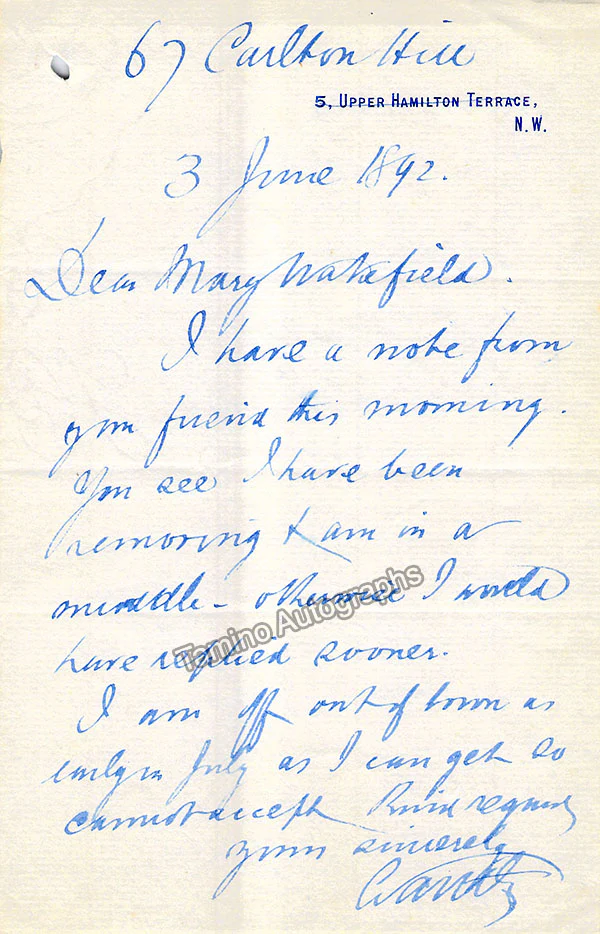 67 Carlton Hill
5, UPPER HAMILTON TERRACE,
N.W.
3 June 1892.
Dear Mary Wakefield.
I have a note from
your friend this morning.
You see I have been
removing & am in a
muddle - otherwise I would
Tamino Autographs
have replied sooner.
I am off out of town as
early in July as I can get so
cannot accept Kind regards
yours sincerely